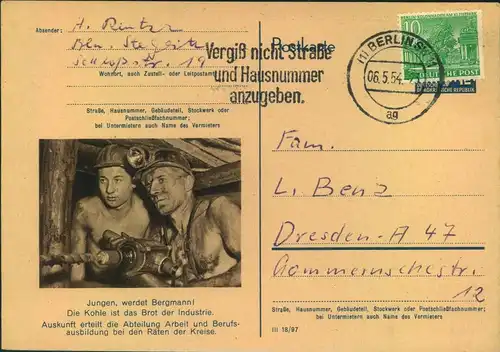 Absender: H. Rintzz
Bln. Steglitz
Schloßstr. 19
Wohnort, auch Zustell- oder Leitpostamt
Straße, Hausnummer, Gebäudeteil, Stockwerk oder
Postschließfachnummer;
bei Untermietern auch Name des Vermieters
Vergiß nicht Straße
und Hausnummer
anzugeben.
Postkarte
(1) BERLIN
06.5.54.
ag
10
DEUTSCHE POST
DEMOKRATISCHE REPUBLIK
Fam.
L. Benz
Dresden-A 47
12
Straße, Hausnummer, Gebäudeteil, Stockwerk oder Postschließfachnummer;
bei Untermietern auch Name des Vermieters
III 18/97
Jungen, werdet Bergmann!
Die Kohle ist das Brot der Industrie.
Auskunft erteilt die Abteilung Arbeit und Berufs-
ausbildung bei den Räten der Kreise.